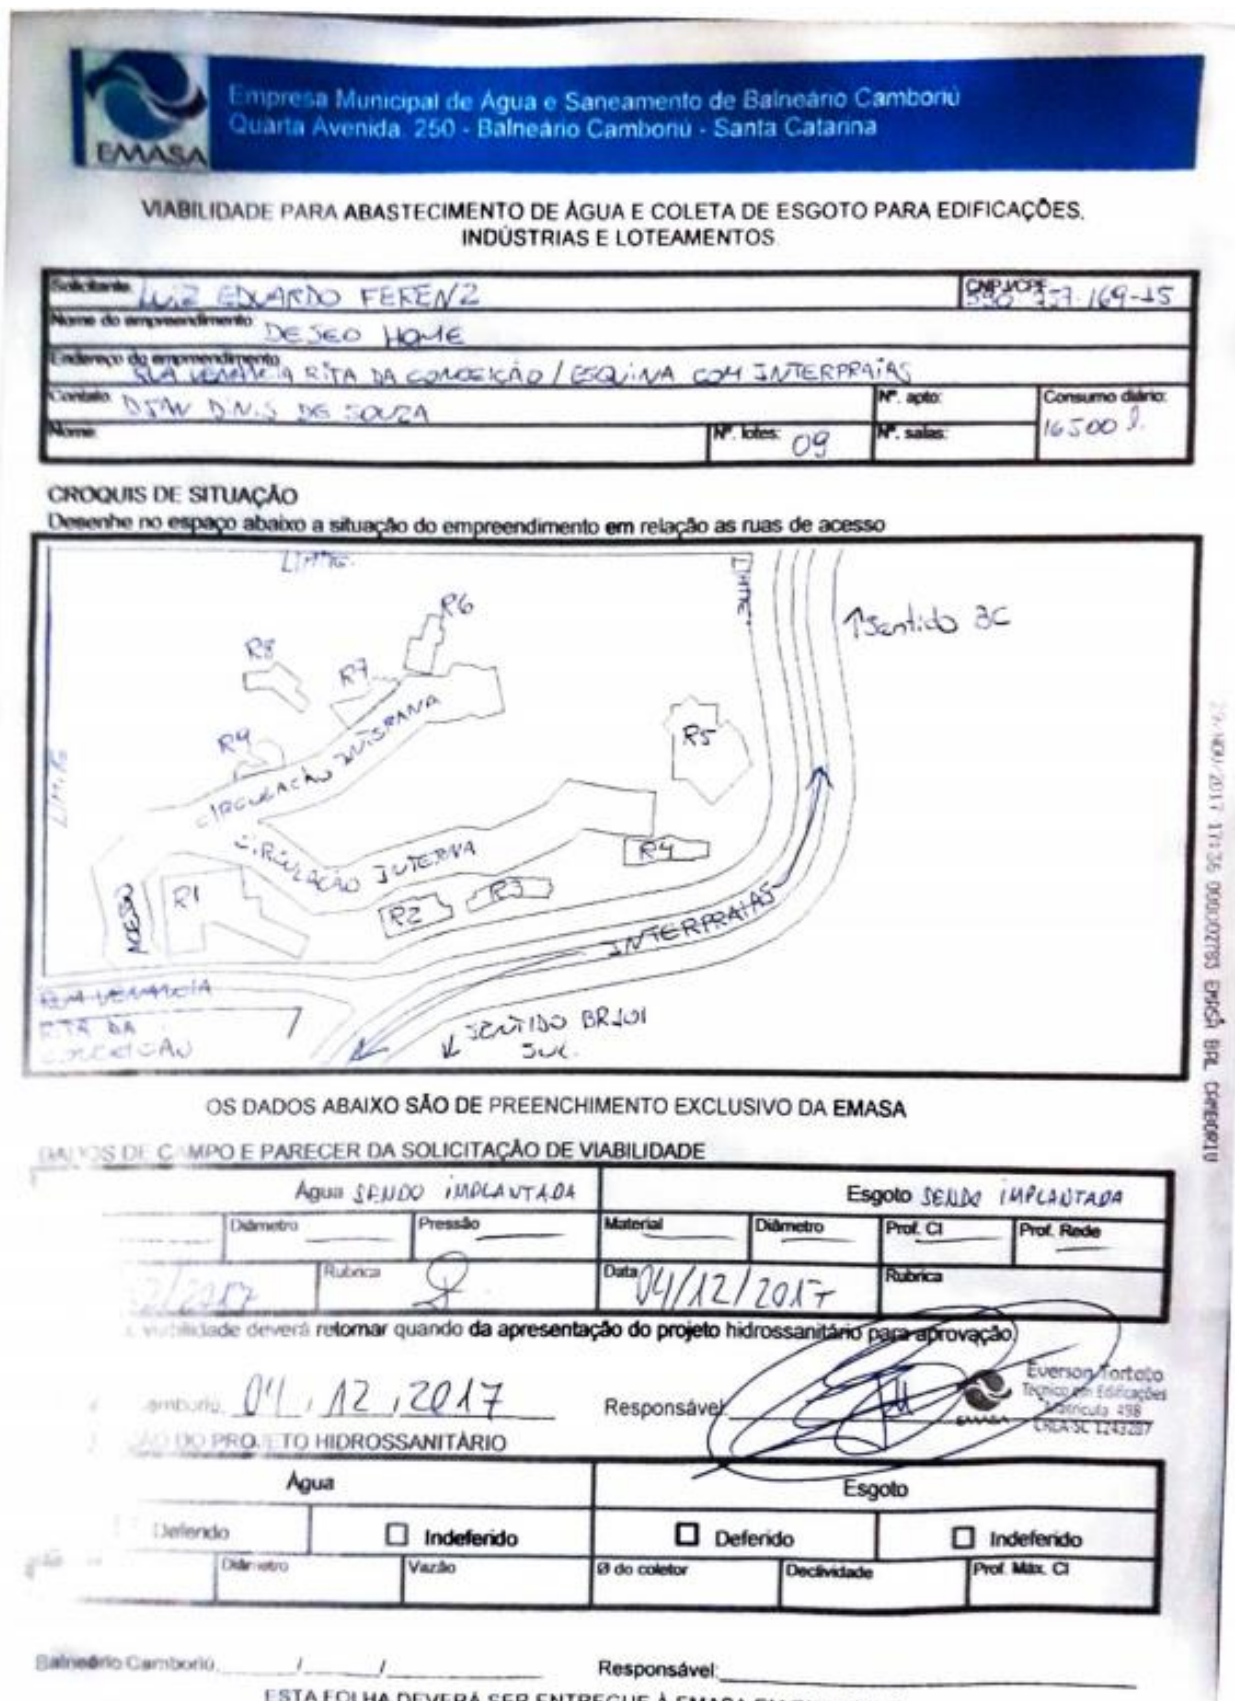 Empresa Municipal de Água e Saneamento de Balneário Camboriú
Quarta Avenida 250 - Balneário Camboriú - Santa Catarina
EMASA
VIABILIDADE PARA ABASTECIMENTO DE ÁGUA E COLETA DE ESGOTO PARA EDIFICAÇÕES,
INDÚSTRIAS E LOTEAMENTOS
Solicitante: LUIZ EDUARDO FERENZ CNPJ/CPF 169-15
Nome do empreendimento DESEO HOME
Endereço do empreendimento RUA VENANCIA RITA DA CONCEIÇÃO / ESQUINA COM INTERPRAIAS
Contato: DE SOUZA Nº. apto: Consumo diário:
Nome: Nº. lotes: 09 Nº. salas: 16500 l.
CROQUIS DE SITUAÇÃO
Desenhe no espaço abaixo a situação do empreendimento em relação as ruas de acesso
LIMITE
LIMITE
R6
↑Sentido BC
R8
R7
R9
R5
LIMITE
CIRCULAÇÃO INTERNA
CIRCULAÇÃO INTERNA
R4
ACESSO
R1
R2
R3
INTERPRAIAS
RUA VENANCIA
RITA DA
CONCEIÇÃO
SENTIDO BR101
SUL.
29/NOV/2017 17:36 000002783 EMASA BAL CAMBORIU
OS DADOS ABAIXO SÃO DE PREENCHIMENTO EXCLUSIVO DA EMASA
DADOS DE CAMPO E PARECER DA SOLICITAÇÃO DE VIABILIDADE
Água SENDO IMPLANTADA Esgoto SENDO IMPLANTADA
Diâmetro Pressão Material Diâmetro Prof. CI Prof. Rede
2/2017 Rubrica Data 04/12/2017 Rubrica
viabilidade deverá retornar quando da apresentação do projeto hidrossanitário para aprovação.
Camboriú, 04, 12, 2017 Responsável:
Everson Tortato
Técnico em Edificações
Matrícula 498
CREA-SC 1243287
EMASA
DO PROJETO HIDROSSANITÁRIO
Água Esgoto
Deferido Indeferido Deferido Indeferido
Diâmetro Vazão Ø do coletor Declividade Prof. Máx. CI
Balneário Camboriú, / / Responsável:
ESTA FOLHA DEVERÁ SER ENTREGUE À EMASA